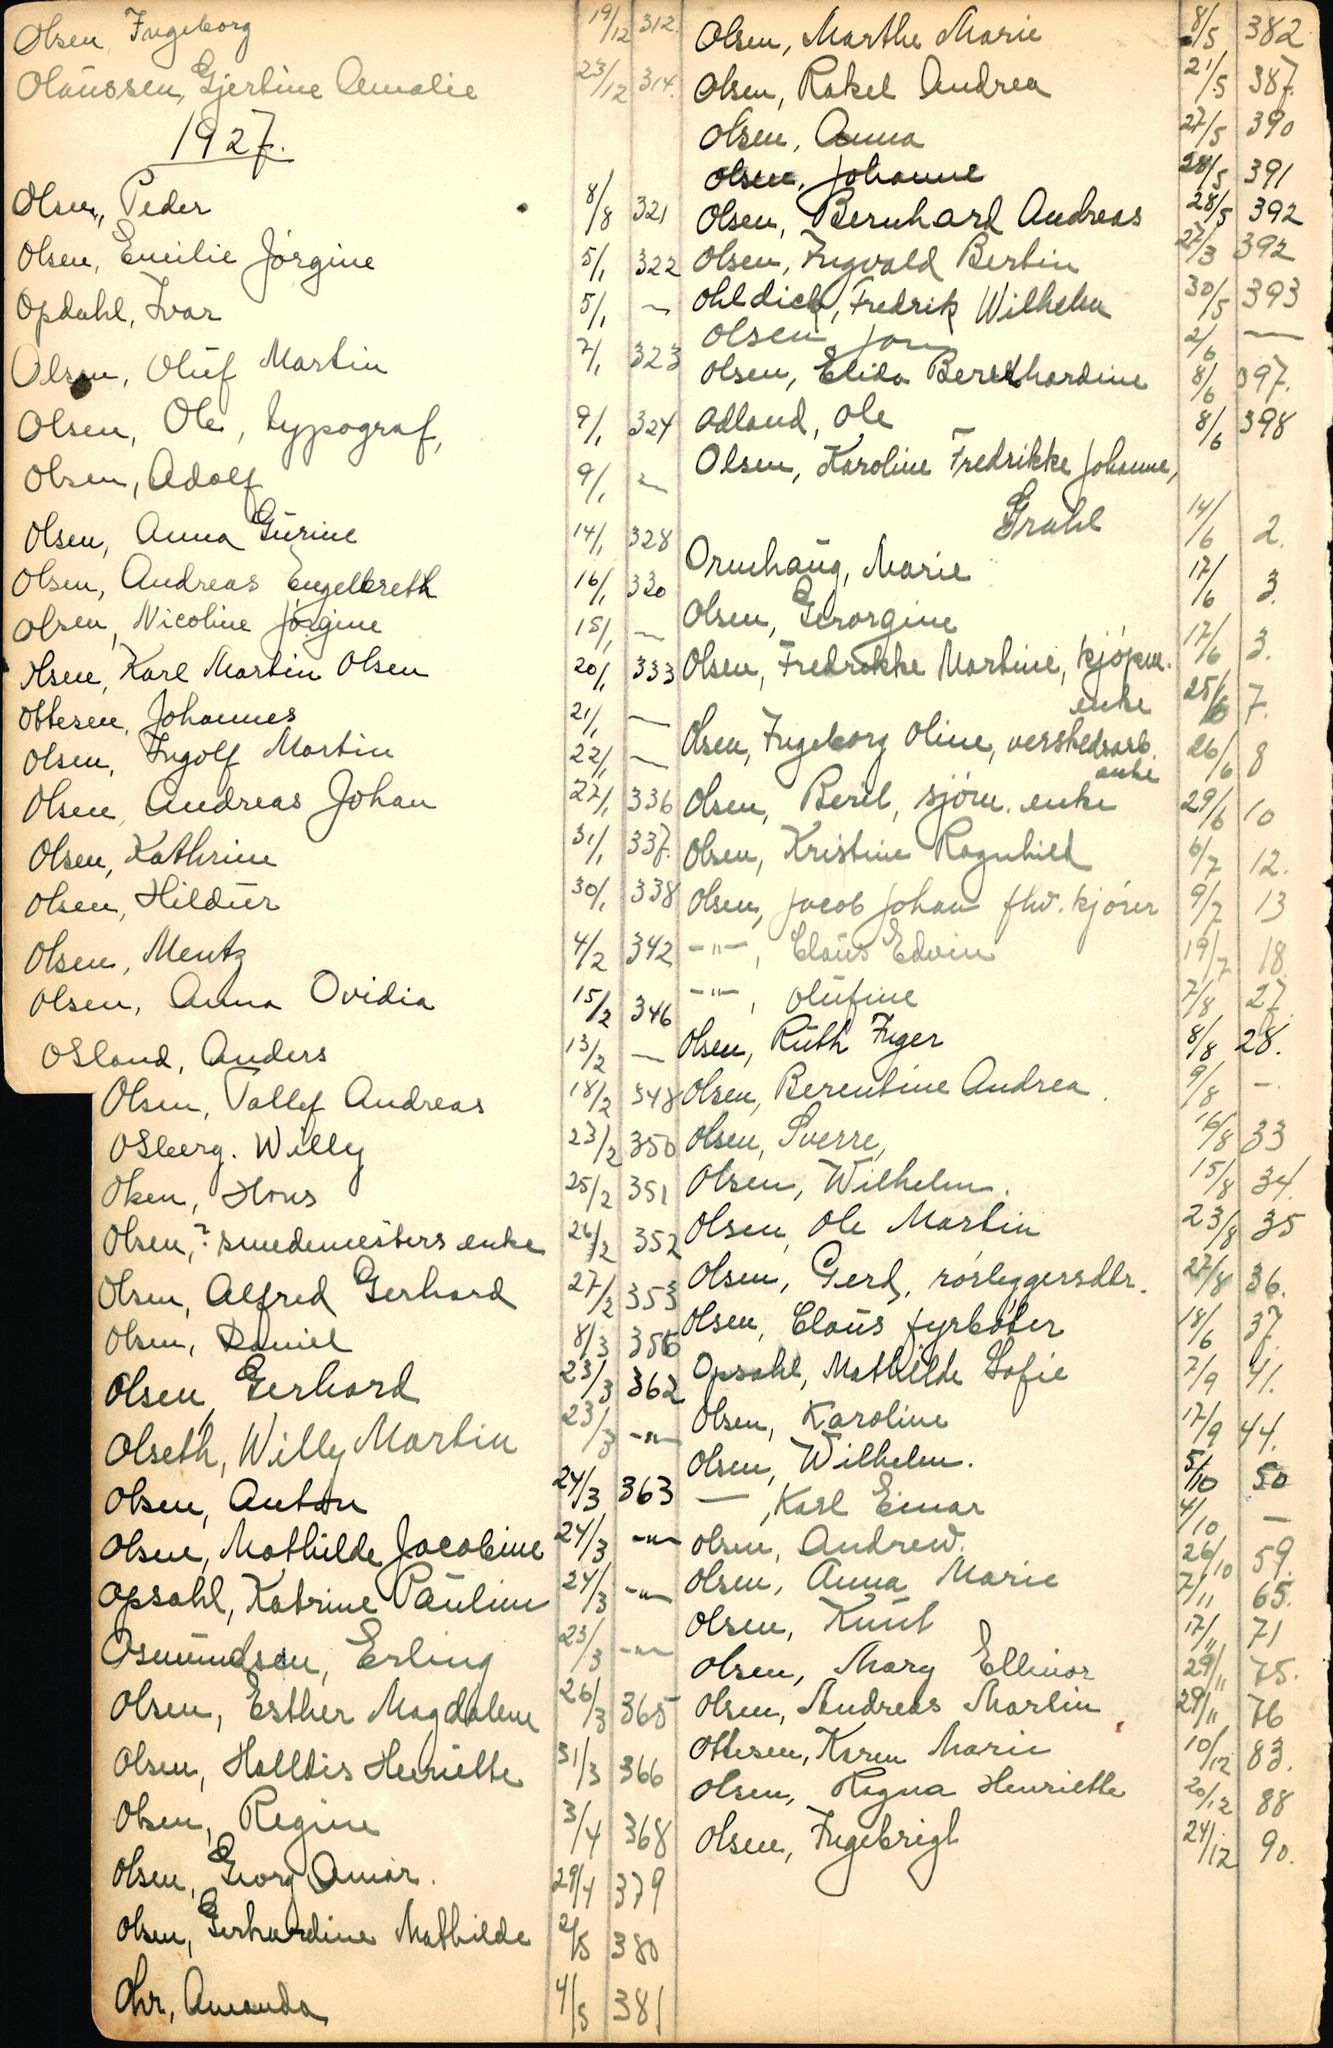 Olsen, Ingeborg 19/12 312.
Olaussen, Gjertine Amalie 23/12 314.
1927.
Olsen, Peder 8/8 321
Olsen, Emilie Jørgine 5/1 322
Opdahl, Ivar 5/1 —
Olsen, Oluf Martin 7/1 323
Olsen, Ole, typograf, 9/1 324
Olsen, Adolf 9/1 —
Olsen, Anna Gurine 14/1 328
Olsen, Andreas Engelbreth 16/1 330
Olsen, Nicoline Jørgine 15/1 —
Olsen, Karl Martin Olsen 20/1 333
Ottesen, Johannes 21/1 —
Olsen, Ingolf Martin 22/1 —
Olsen, Andreas Johan 27/1 336
Olsen, Kathrine 31/1 337.
Olsen, Hildur 30/1 338
Olsen, Mentz 4/2 342
Olsen, Anna Ovidia 15/2 346
Osland, Anders 13/2 —
Olsen, Tallef Andreas 18/2 348
Osberg. Willy 23/2 350
Olsen, Hans 25/2 351
Olsen, ? smedemesters enke 26/2 352
Olsen, Alfred Gerhard 27/2 353
Olsen, Daniel 8/3 356
Olsen, Gerhard 23/3 362
Olseth, Willy Martin 23/3 -"-
Olsen, Anton 24/3 363
Olsen, Mathilde Jacobine 24/3 -"-
Opsahl, Katrine Pauline 24/3 -"-
Osmundsen, Erling 23/3 -"-
Olsen, Esther Magdalene 26/3 365
Olsen, Halldis Henriette 31/3 366
Olsen, Regine 3/4 368
Olsen, Georg Omar. 29/4 379
Olsen, Gerhardine Mathilde 2/5 380
Ohr, Amanda 4/5 381
Olsen, Marthe Marie 8/5 382
Olsen, Rakel Andrea 21/5 387.
Olsen, Anna 27/5 390
Olsen, Johanne 28/5 391
Olsen, Bernhard Andreas 28/5 392
Olsen, Ingvald Bertin 27/3 392
Ohldick, Fredrik Wilhelm 30/5 393
Olsen, Jon 2/6 —
Olsen, Elida Bernhardine 8/6 397.
Odland, Ole 8/6 398
Olsen, Karoline Fredrikke Johanne,
Grahl 14/6 2.
Ormhaug, Marie 17/6 3.
Olsen, Gerorgine 17/6 3.
Olsen, Fredrikke Martine, kjøpm.
enke 25/6 7.
Olsen, Ingeborg Oline, verkstedsarb.
enke 26/6 8
Olsen, Beril, sjøm. enke 29/6 10
Olsen, Kristine Ragnhild 6/7 12.
Olsen, Jacob Johan fhv. kjører 9/7 13
-"-, Claus Edvin 19/7 18.
-"-, Olufine 7/8 27.
Olsen, Ruth Inger 8/8 28.
Olsen, Berentine Andrea. 9/8 -
Olsen, Sverre, 16/8 33
Olsen, Wilhelm. 15/8 34.
Olsen, Ole Martin 23/8 35
Olsen, Gerd, rørleggersdtr. 27/8 36.
Olsen, Claus fyrbøter 18/6 37.
Opsahl, Mathilde Sofie 7/9 41.
Olsen, Karoline 17/9 44.
Olsen, Wilhelm. 5/10 50
—, Karl Einar 4/10 —
Olsen, Andrew. 26/10 59.
Olsen, Anna Marie 7/11 65.
Olsen, Knut 17/11 71
Olsen, Mary Ellinor 29/11 75.
Olsen, Andreas Martin 29/11 76
Ottesen, Karen Marie 10/12 83.
Olsen, Ragna Henriette 20/12 88
Olsen, Ingebrigt 24/12 90.